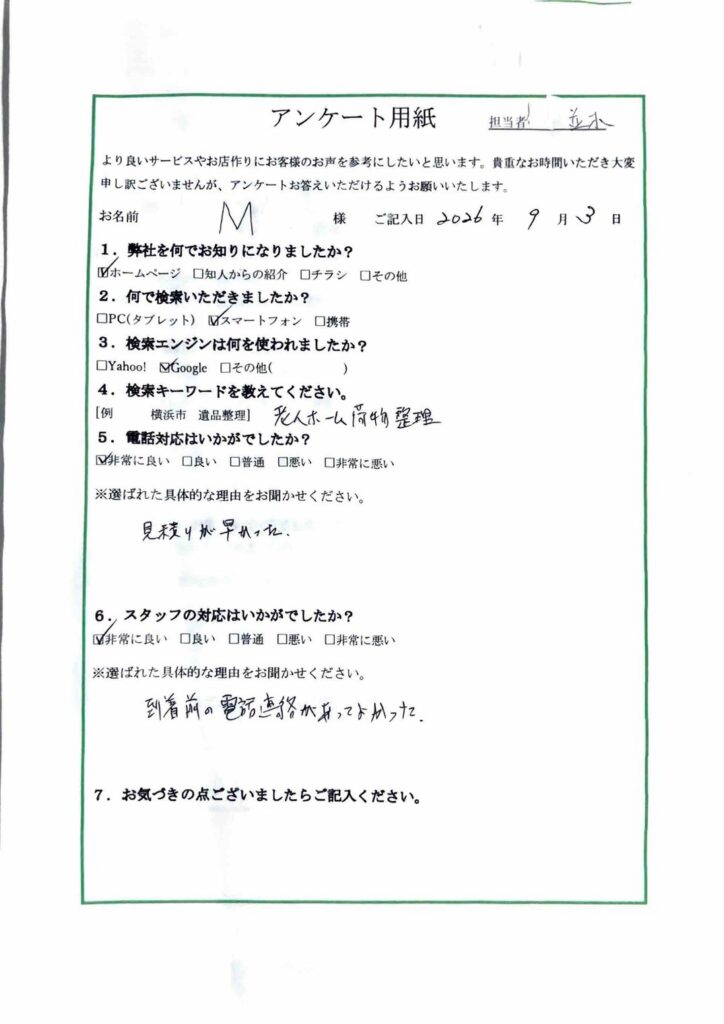 アンケート用紙
担当者 並木
より良いサービスやお店作りにお客様のお声を参考にしたいと思います。貴重なお時間いただき大変
申し訳ございませんが、アンケートお答えいただけるようお願いいたします。
お名前 M 様 ご記入日 2026 年 9 月 3 日
1．弊社を何でお知りになりましたか？
☑ホームページ □知人からの紹介 □チラシ □その他
2．何で検索いただきましたか？
□PC(タブレット) ☑スマートフォン □携帯
3．検索エンジンは何を使われましたか？
□Yahoo! ☑Google □その他( )
4．検索キーワードを教えてください。
[例 横浜市 遺品整理] 老人ホーム荷物整理
5．電話対応はいかがでしたか？
☑非常に良い □良い □普通 □悪い □非常に悪い
※選ばれた具体的な理由をお聞かせください。
見積りが早かった.
6．スタッフの対応はいかがでしたか？
☑非常に良い □良い □普通 □悪い □非常に悪い
※選ばれた具体的な理由をお聞かせください。
到着前の電話連絡があってよかった.
7．お気づきの点ございましたらご記入ください。